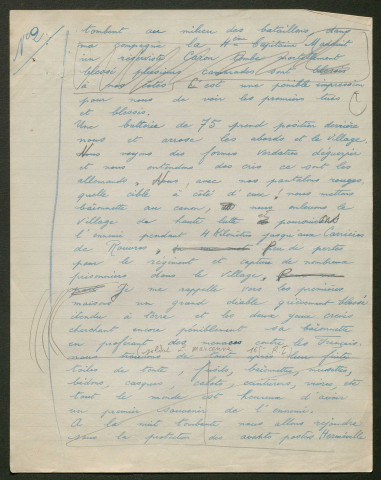 N° 2
tombent au milieu des bataillons dans
ma compagnie la 4ème Capitaine
un réserviste Caron tombe mortellement
blessé plusieurs camarades sont blessés
à nos côtés C'est une pénible impression
pour nous de voir les premiers tués
et blessés.
Une batterie de 75 prend position derrière
nous et arrose les abords et le village.
Nous voyons des formes verdâtres déguerpir
et nous entendons des cris ce sont les
allemands. Nous, avec nos pantalons rouges,
quelle cible à côté d'eux, nous mettons
baïonnette au canon, nous enlevons le
village de haute lutte poursuivons
l'ennemi pendant 4 kilomètres jusqu'aux Carrières
de Rouvres. Peu de pertes
pour le régiment et capture de nombreux
prisonniers dans le village.
Je me rappelle vers les premières
maisons un grand diable grièvement blessé
étendu à terre et les deux yeux crevés
cherchant encore péniblement sa baïonnette
en proférant des menaces contre les Français.
nous de tout dans leur fuite
toiles de tente, fusils, baïonnettes, musettes,
bidons, casques, calots, ceinturons, vivres, etc
tout le monde est heureux d'avoir
un premier souvenir de l'ennemi.
A la nuit tombante nous allons rejoindre
sous la protection des avants postes